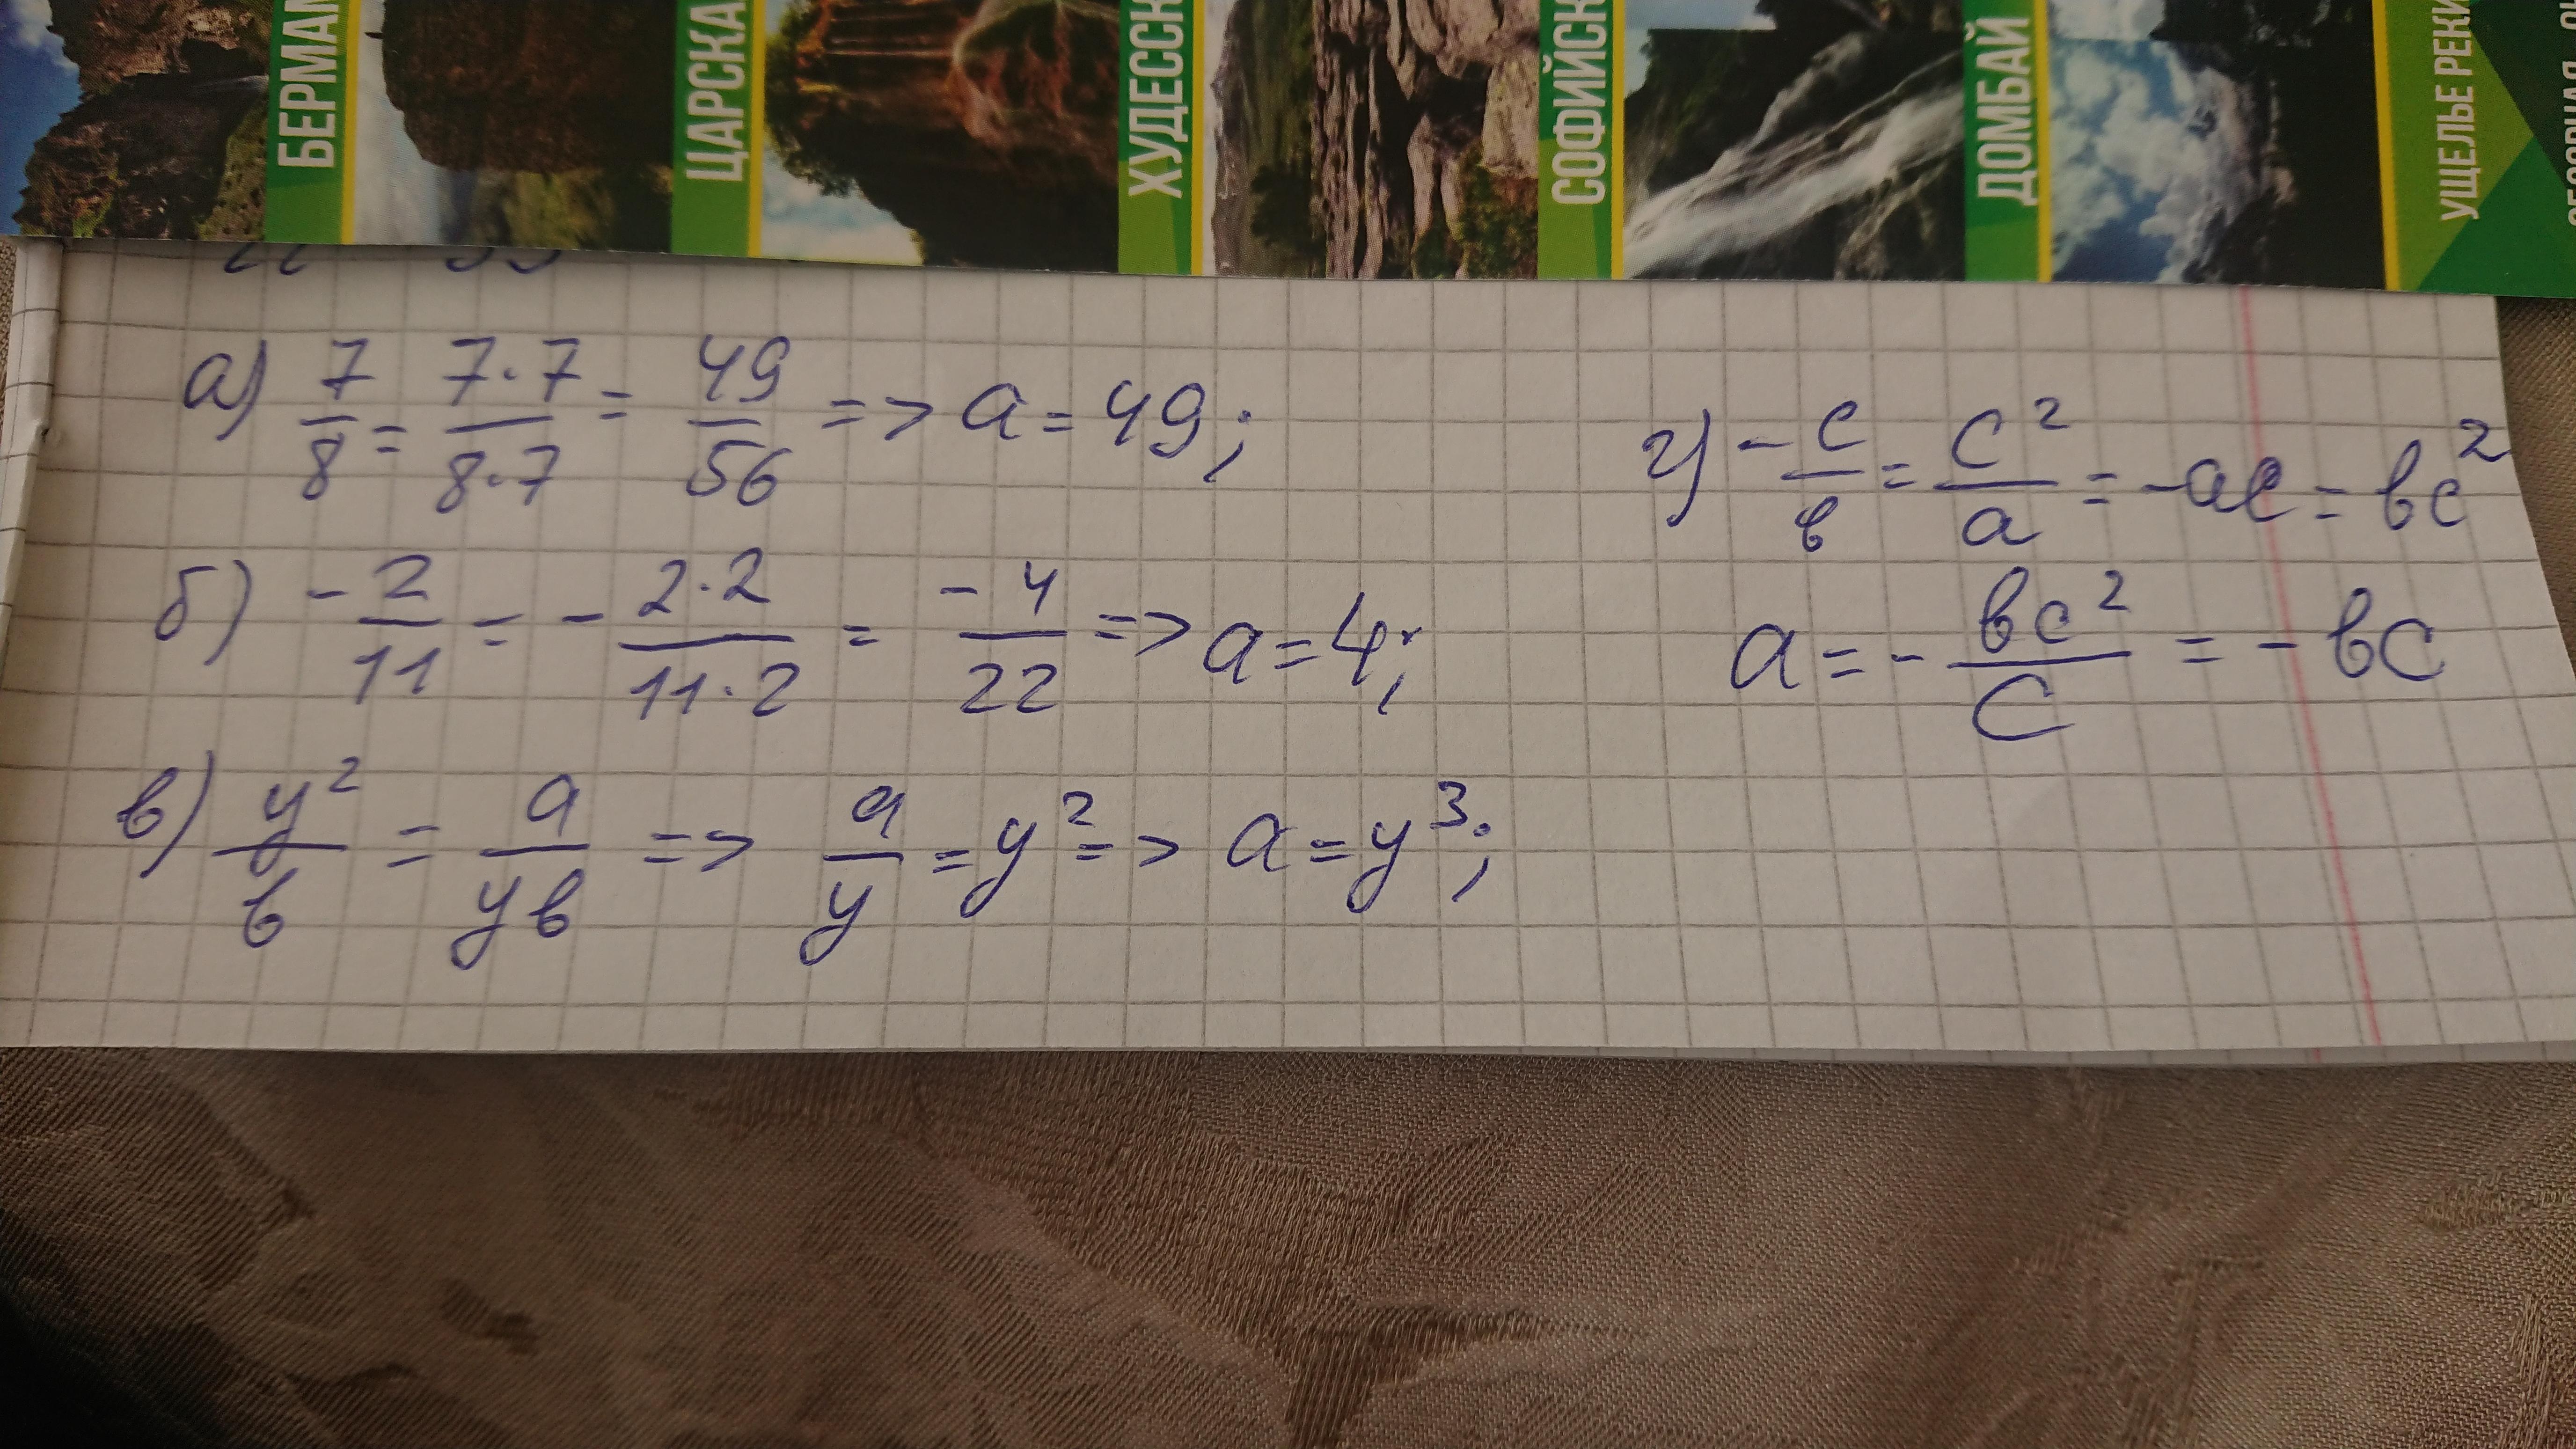 БЕРМАМ
ЦАРСКА
ХУДЕССК
СОФИЙСК
ДОМБАЙ
УЩЕЛЬЕ РЕКИ
а) 7/8 = 7·7/8·7 = 49/56 => a = 49;
б) -2/11 = - 2·2/11·2 = -4/22 => a = 4;
в) y²/в = a/yв => a/y = y² => a = y³;
г) -c/в = c²/a = -ac = вc²
a = - вc²/c = - вc